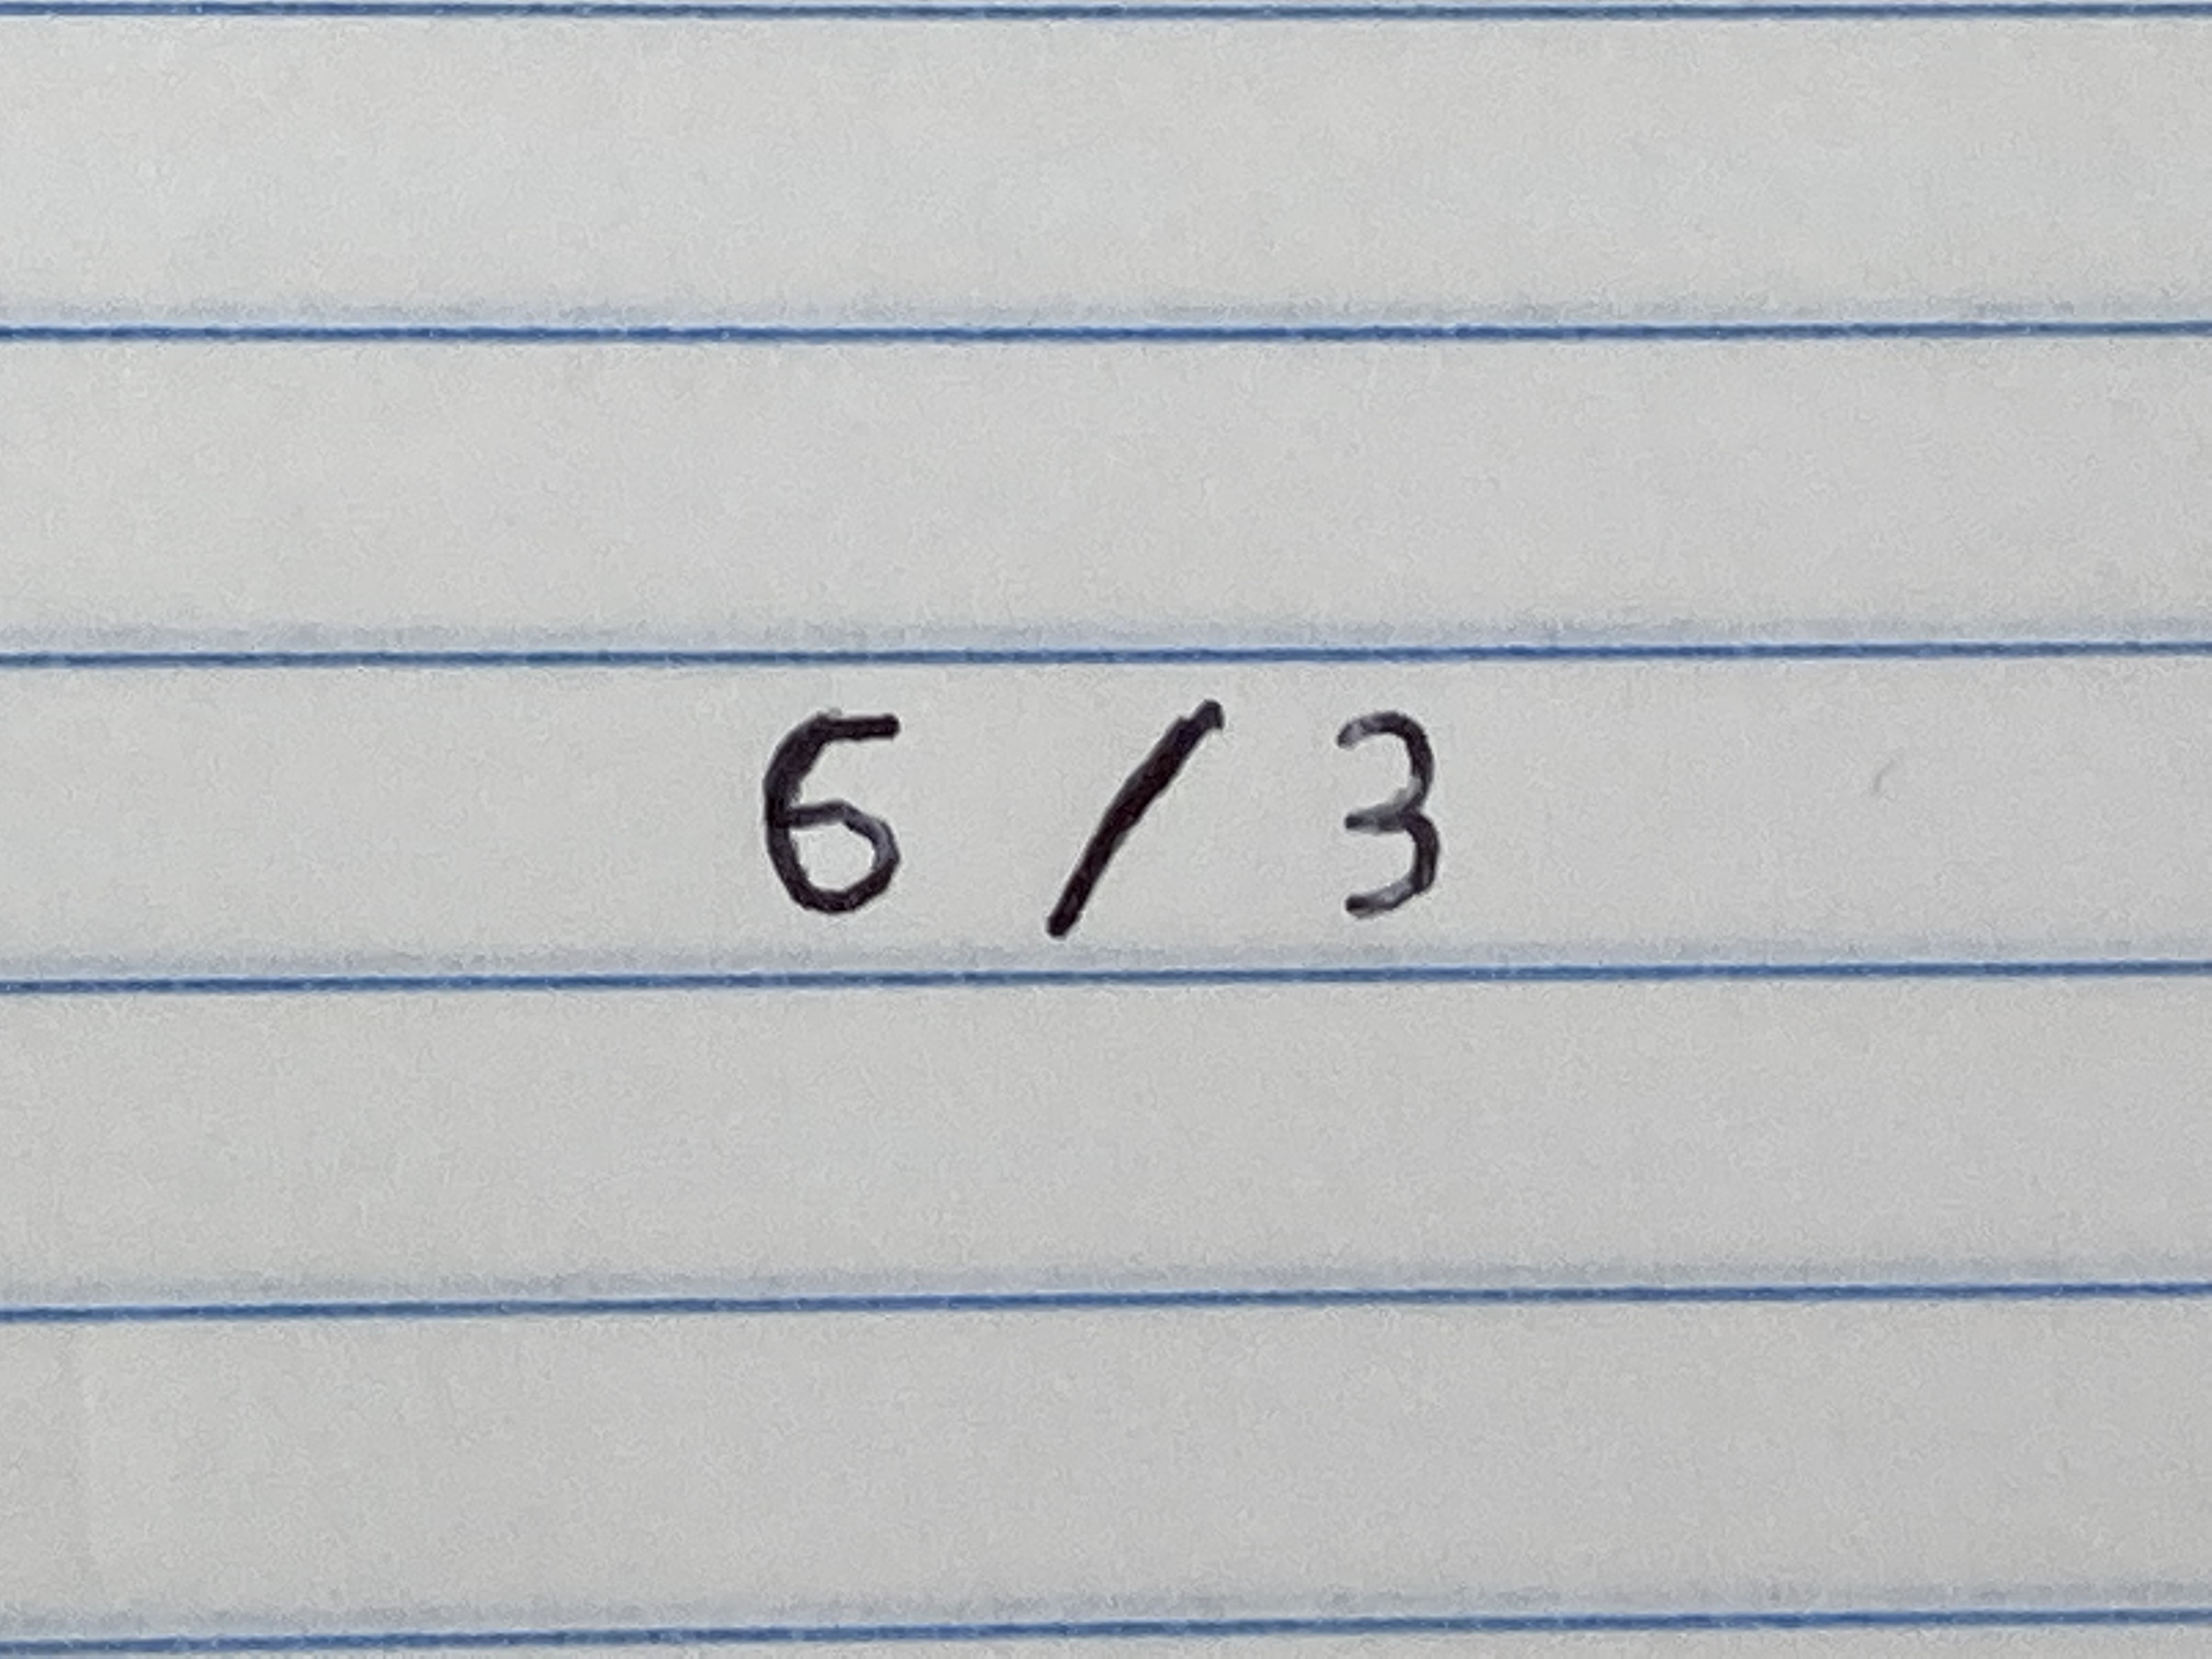 6 / 3